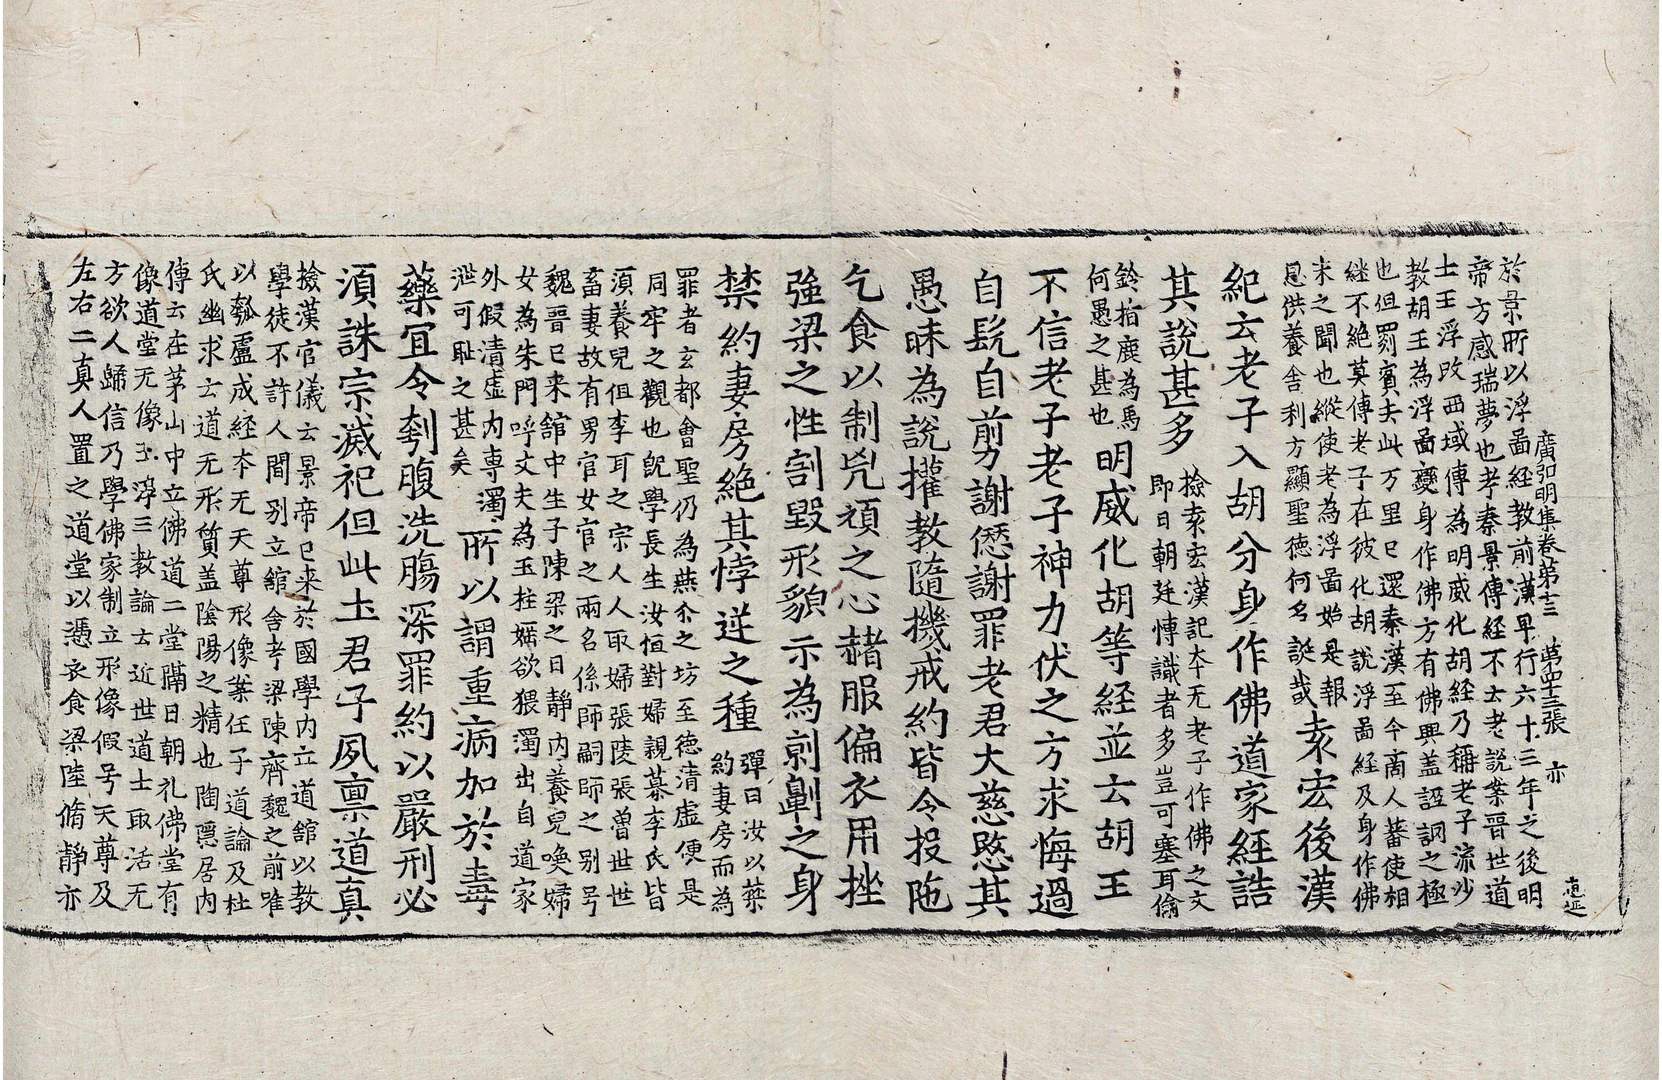 廣弘明集卷第十三　第四十三張　亦
於景所以浮啚経教前漢早行六十三年之後明
帝方感瑞夢也考秦景傳経不去老說案晉世道
士王浮改西域傳為明威化胡経乃稱老子流沙
教胡王為浮啚變身作佛方有佛興盖誣詷之極
也但罽賓去此万里巳還秦漢至今商人蕃使相
継不絶莫傳老子在彼化胡說浮啚経及身作佛
未之聞也縱使老為浮啚始是報
恩供養舍利方顯聖德何名誕哉
袁宏後漢
紀云老子入胡分身作佛道家經誥
其說甚多
撿袁宏漢記本无老子作佛之文
即日朝廷博識者多豈可塞耳偷
鈴指鹿為馬
何愚之甚也
明威化胡等経並云胡王
不信老子老子神力伏之方求悔過
自髡自剪謝𠎝謝罪老君大慈愍其
愚昧為說權教隨機戒約皆令投陁
乞食以制兇頑之心赭服偏衣用挫
強梁之性割毀形貌示為剠劓之身
禁約妻房絶其悖逆之種
彈曰汝以藥
約妻房而為
罪者玄都會聖仍為燕尒之坊至德清虚便是
同牢之觀也旣學長生汝恒對婦親慕李氏皆
湏養兒但李耳之宗人人取婦張陵張魯世世
畜妻故有男官女官之兩名係師嗣師之別号
魏晉巳来舘中生子陳梁之日靜内養兒喚婦
女為朱門呼丈夫為玉柱婬欲猥濁出自道家
外假清虚内專濁
泄可耻之甚矣
所以謂重病加於毒
藥宜令刳腹洗膓深罪約以嚴刑必
湏誅宗滅祀但此土君子夙禀道真
撿漢官儀云景帝巳来於國學内立道舘以教
學徒不許人間別立舘舍考梁陳齊魏之前唯
以瓠盧成経本无天尊形像案任子道論及杜
氏幽求云道无形質盖陰陽之精也陶隠居内
傳云在茅山中立佛道二堂隔日朝礼佛堂有
像道堂无像王淳三教論云近世道士取活无
方欲人歸信乃學佛家制立形像假号天尊及
左右二真人置之道堂以憑衣食梁陸脩靜亦